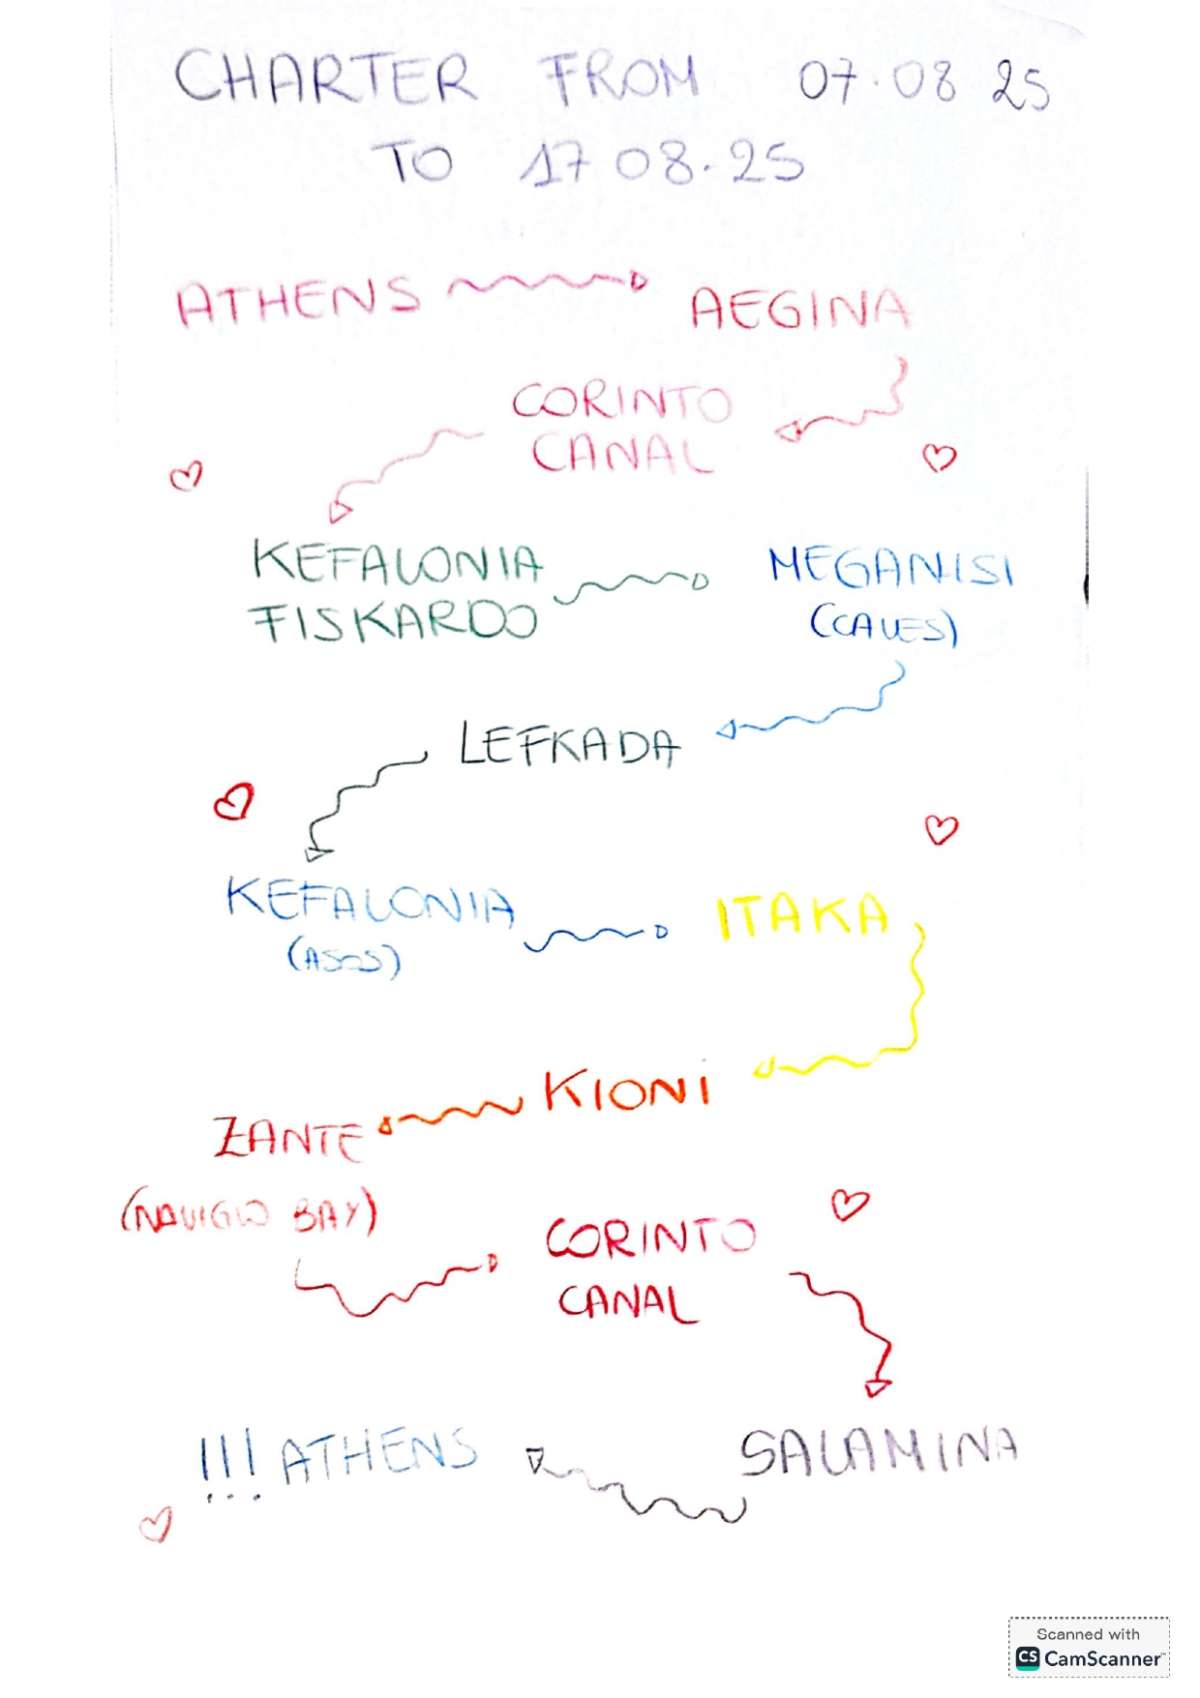 CHARTER FROM 07.08 25
TO 17 08.25
ATHENS
AEGINA
CORINTO
CANAL
KEFALONIA
FISKARDO
MEGANISI
(CAVES)
LEFKADA
KEFALONIA
(ASOS)
ITAKA
KIONI
ZANTE
(NAVIGIO BAY)
CORINTO
CANAL
SALAMINA
!!! ATHENS
Scanned with
CS CamScanner